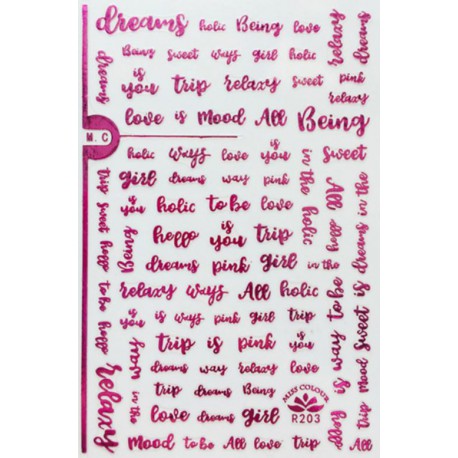 dreams holic Being love
Being sweet ways girl holic
is you trip relaxy sweet pink
relaxy
love is Mood All Being
M.C
holic ways love is you sweet
girl dreams way pink
you holic to be love
hello is you trip
dreams pink girl in the
relaxy ways All holic
is you is ways pink girl trip
trip is pink
dreams way relaxy love
trip dreams Being
love dreams girl
Mood to be All love trip
MISS COLOUR
R203
dreams
trip sweet hello to be hello
relaxy
in the
relaxy
dreams
in the holic
All hello
is way to be hello
Mood Sweet is dreams in the
All